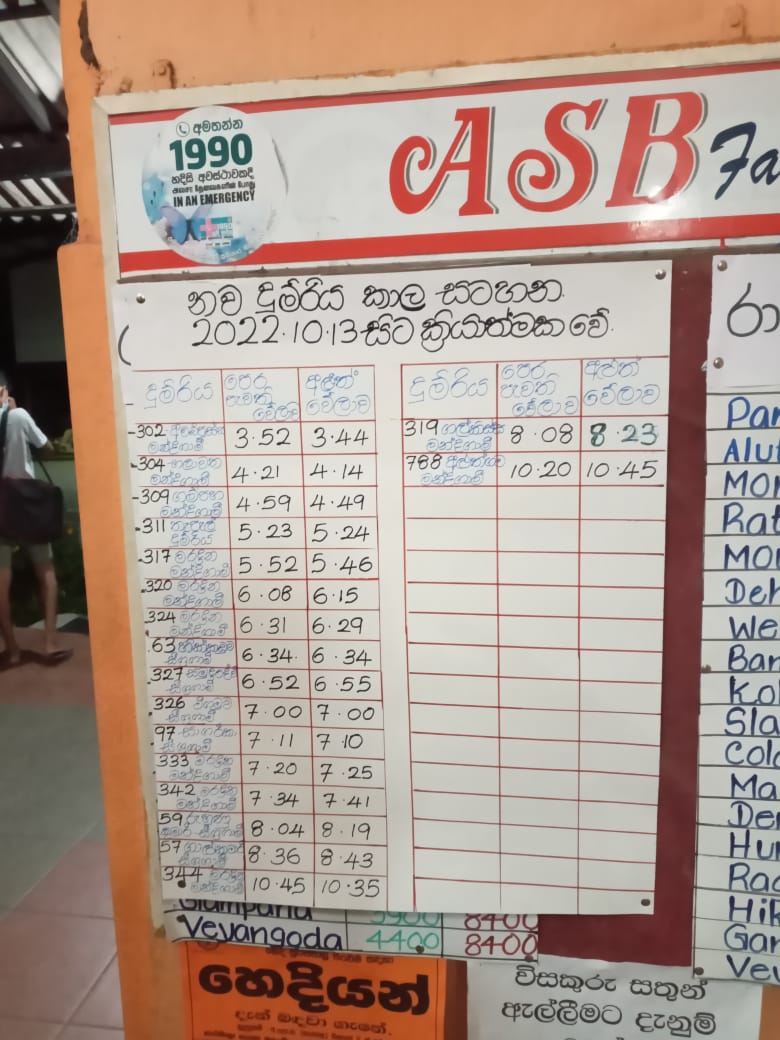 අමතන්න
1990
හදිසි අවස්ථාවකදී
IN AN EMERGENCY
ASB Fa
නව දුම්රිය කාල සටහන
2022.10.13 සිට ක්‍රියාත්මක වේ.
දුම්රිය පෙර පැවති වේලාව අළුත් වේලාව
302 මන්දගාමී 3.52 3.44
304 හලාවත මන්දගාමී 4.21 4.14
309 ගම්පහ මන්දගාමී 4.59 4.49
311 තැපැල් දුම්රිය 5.23 5.24
317 මරදාන මන්දගාමී 5.52 5.46
320 මරදාන මන්දගාමී 6.08 6.15
324 මරදාන මන්දගාමී 6.31 6.29
63 සීඝ්‍රගාමී 6.34 6.34
327 සීඝ්‍රගාමී 6.52 6.55
326 සීඝ්‍රගාමී 7.00 7.00
97 සාගරිකා සීඝ්‍රගාමී 7.11 7.10
333 මරදාන මන්දගාමී 7.20 7.25
342 මරදාන මන්දගාමී 7.34 7.41
59 රුහුණු කුමාරි සීඝ්‍රගාමී 8.04 8.19
57 ගාලු කුමාරි සීඝ්‍රගාමී 8.36 8.43
344 මරදාන මන්දගාමී 10.45 10.35
දුම්රිය පෙර පැවති වේලාව අළුත් වේලාව
319 ගල්කිස්ස මන්දගාමී 8.08 8.23
788 අළුත්ගම මන්දගාමී 10.20 10.45
රා
Pan
Alut
Mor
Rat
Mo
Deh
We
Ban
Kol
Sla
Colo
Ma
Der
Hur
Rag
Hik
Gam
Vey
5900 8400
Veyangoda 4400 8400
හෙදියන්
දැන් බඳවා ගැනේ.
විසකුරු සතුන්
ඇල්ලීමට දැනුම්